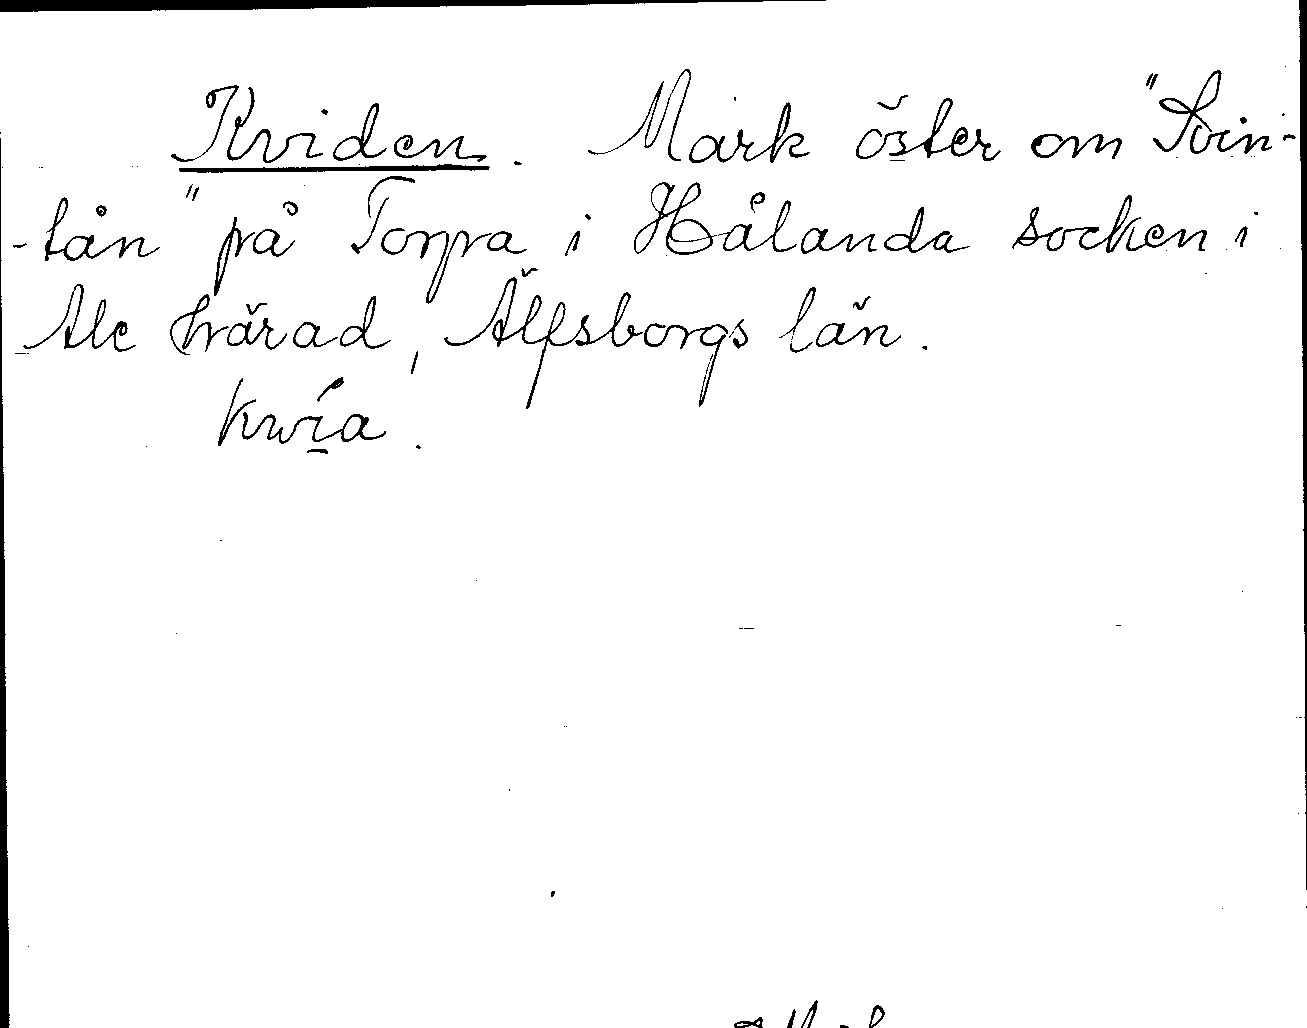 Kviden. Mark öster om "Svin-
-tån" på Torpa i Hålanda socken i
Ale härad, Älfsborgs län.
kwía.